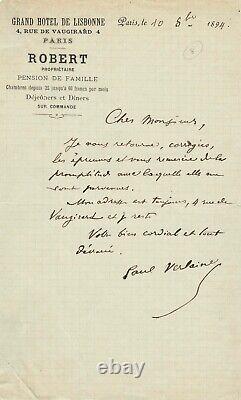 GRAND HOTEL DE LISBONNE
4, RUE DE VAUGIRARD 4
PARIS
ROBERT
PROPRIÉTAIRE
PENSION DE FAMILLE
Chambres depuis 35 jusqu'à 60 francs par mois
Déjeûners et Dîners
SUR COMMANDE
Paris, le 10 8bre 1894
Cher Monsieur,
Je vous retourne, corrigées,
les épreuves et vous remercie de la
promptitude avec laquelle elles me
sont parvenues.
Mon adresse est toujours, 4 rue de
Vaugirard et je reste
Votre bien cordial et tout
dévoué.
Paul Verlaine
© ebay